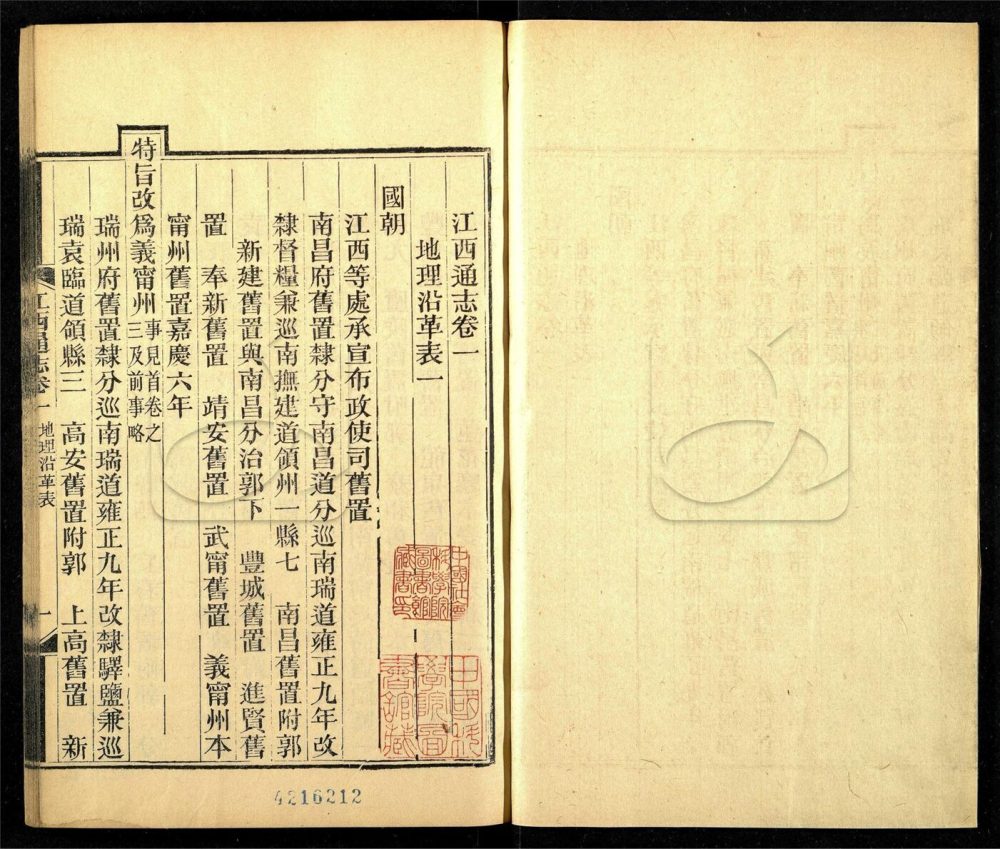 江西通志卷一
地理沿革表一
國朝
江西等處承宣布政使司舊置
南昌府舊置隸分守南昌道分巡南瑞道雍正九年改
隸督糧兼巡南撫建道領州一縣七　南昌舊置附郭
新建舊置與南昌分治郭下　豐城舊置　進賢舊
置　奉新舊置　靖安舊置　武甯舊置　義甯州本
甯州舊置嘉慶六年
特旨改爲義甯州事見首卷之三及前事略
瑞州府舊置隸分巡南瑞道雍正九年改隸驛鹽兼巡
瑞袁臨道領縣三　高安舊置附郭　上高舊置　新
江西通志卷一　地理沿革表　一
中國科學院圖書館藏
4216212